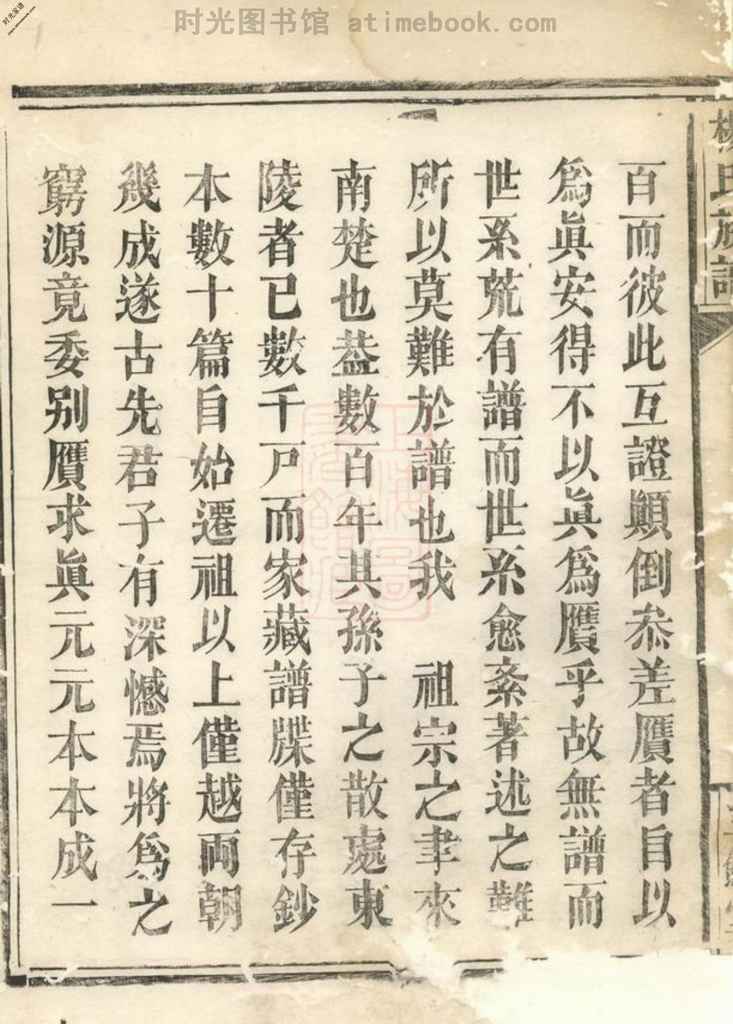 时光图书馆 atimebook.com
时光家谱
www.atimebook.com
楊氏族譜
百而彼此互證顛倒叅差贋者自以
爲眞安得不以眞爲贋乎故無譜而
世系荒有譜而世系愈紊著述之難
所以莫難於譜也我　祖宗之聿來
南楚也葢數百年其孫子之散處東
陵者已數千戸而家藏譜牒僅存鈔
本數十篇自始遷祖以上僅越兩朝
幾成邃古先君子有深憾焉將爲之
窮源竟委别贋求眞元元本本成一